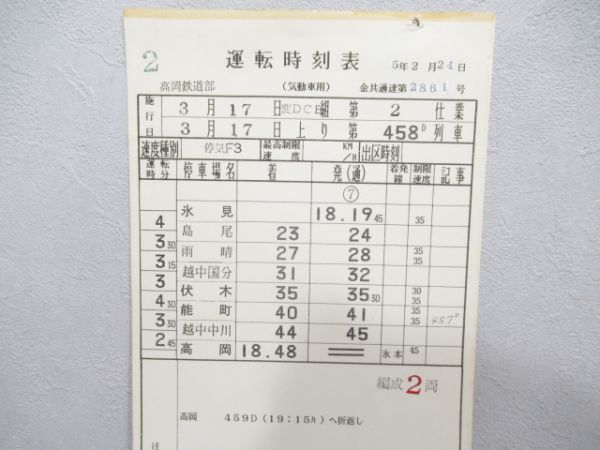 2 運転時刻表 5年2月24日
高岡鉄道部 (気動車用) 金共通達第2861号
施行日 3月17日改DCE組 第 2 仕業
3月17日上り 第 458D 列車
速度種別 停気F3 最高制限速度 KM/H 出区時刻
運転時分 停車場名 着 発(通) 着発線 制限速度 記事
⑦
氷見 18.19 45 35
4
島尾 23 24
3 30
雨晴 27 28 35 35
3 15
越中国分 31 32
3
伏木 35 35 30 30 35
4 30
能町 40 41 35 35 457D
3 30
越中中川 44 45
2 45
高岡 18.48 氷本 45
編成2両
高岡 459D(19:15カ)へ折返し